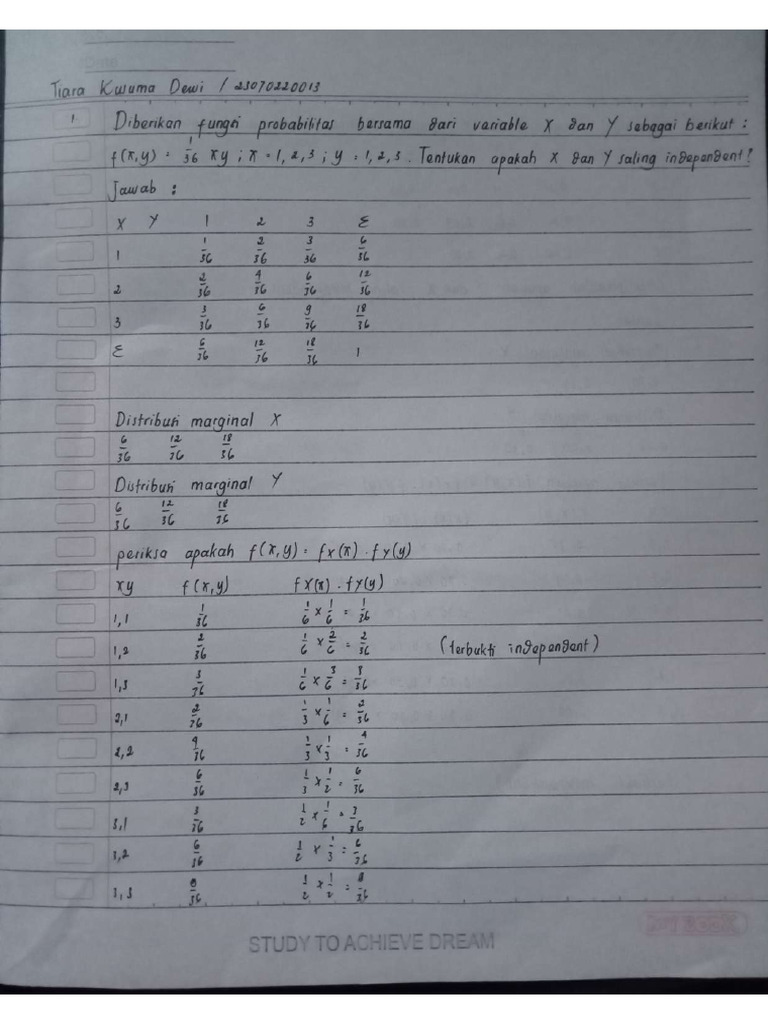 Tiara Kusuma Dewi / 23070220013
1 Diberikan fungsi probabilitas bersama dari variable X dan Y sebagai berikut :
f(x,y) = 1/36 xy ; x = 1, 2, 3 ; y = 1, 2, 3 . Tentukan apakah X dan Y saling independent ?
Jawab :
X Y 1 2 3 Σ
1 1/36 2/36 3/36 6/36
2 2/36 4/36 6/36 12/36
3 3/36 6/36 9/36 18/36
Σ 6/36 12/36 18/36 1
Distribusi marginal X
6/36 12/36 18/36
Distribusi marginal Y
6/36 12/36 18/36
periksa apakah f(x,y) = fX(x) . fY(y)
xy f(x,y) fX(x) . fY(y)
1,1 1/36 1/6 x 1/6 = 1/36
1,2 2/36 1/6 x 2/6 = 2/36 (terbukti independent)
1,3 3/36 1/6 x 3/6 = 3/36
2,1 2/36 1/3 x 1/6 = 2/36
2,2 4/36 1/3 x 1/3 = 4/36
2,3 6/36 1/3 x 1/2 = 6/36
3,1 3/36 1/2 x 1/6 = 3/36
3,2 6/36 1/2 x 1/3 = 6/36
3,3 9/36 1/2 x 1/2 = 9/36
STUDY TO ACHIEVE DREAM